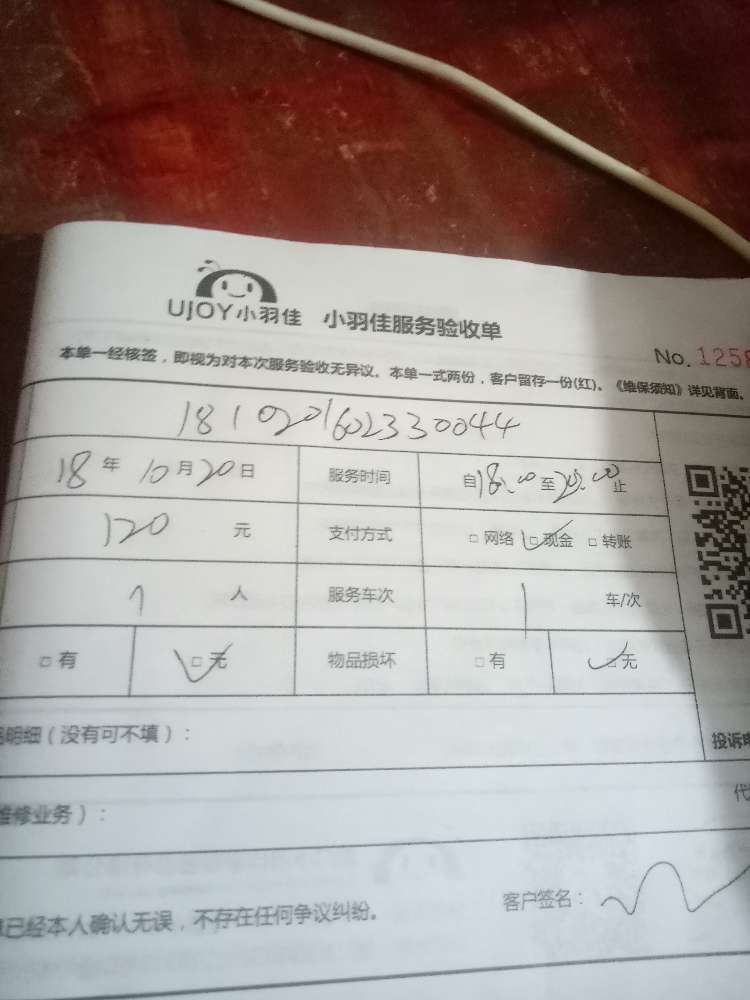 UJOY小羽佳 小羽佳服务验收单
No. 125
本单一经核签，即视为对本次服务验收无异议。本单一式两份，客户留存一份(红)。《维保须知》详见背面。
1810201602330044
18年10月20日 服务时间 自18:00至20:00止
120 元 支付方式 □网络 □现金 □转账
1 人 服务车次 1 车/次
□有 □无 物品损坏 □有 □无
明细（没有可不填）：
投诉
维修业务）：
代
已经本人确认无误，不存在任何争议纠纷。 客户签名：